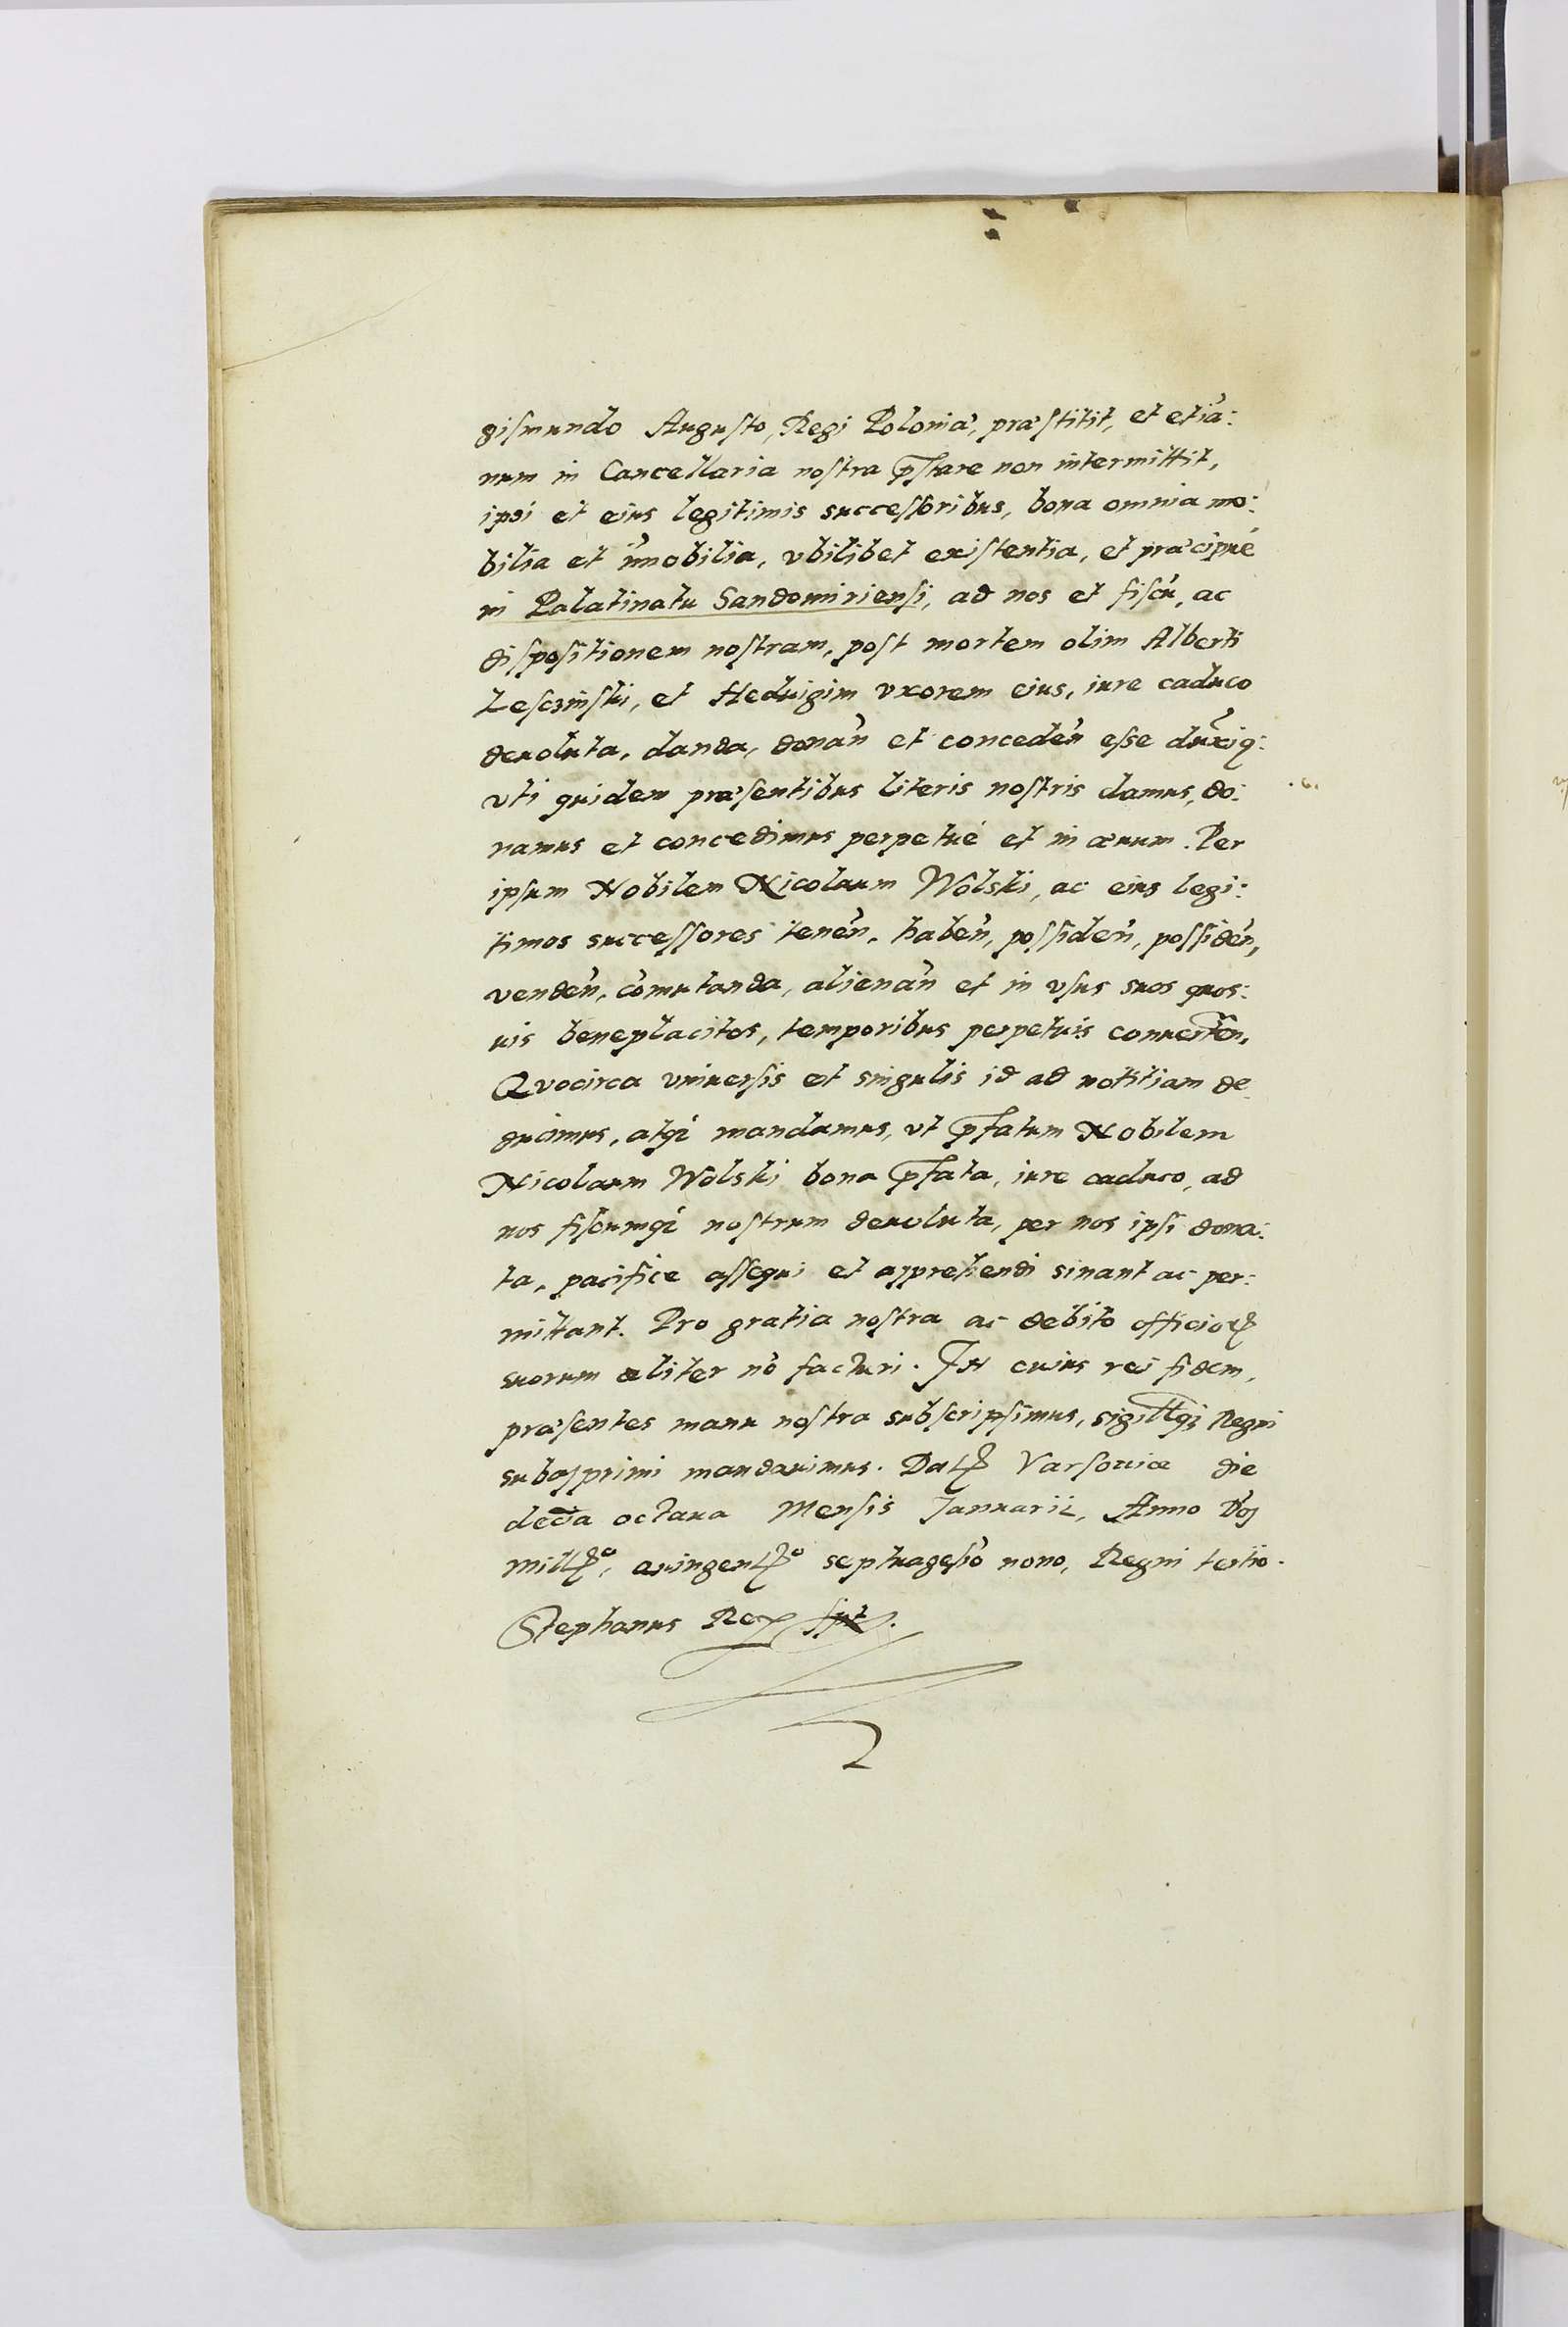 gismundo Augusto, Regi Poloniæ, præstitit, et etiã:
num in Cancellaria nostra p̃stare non intermittit,
ipsi et eius legitimis successoribus, bona omnia mo:
bilia et im̃obilia, vbilibet existentia, et præcipué
in Palatinatu Sandomiriensi, ad nos et fiscũ, ac
dispositionem nostram, post mortem olim Alberti
Lesczinski, et Hedvigim vxorem eius, iure caduco
deuoluta, danda, donan̄ et conceden̄ esse duxim9:
vti quidem præsentibus literis nostris damus, do:
namus et concedimus perpetué et in æuum. Per
ipsum Nobilem Nicolaum Wolski, ac eius legi:
timos successores tenen̄, haben̄, possiden̄, possiden̄,
venden̄, com̃utanda, alienan̄ et in vsus suos quos:
uis beneplacitos, temporibus perpetuis conuerten̄,
Quocirca vniuersis et singulis id ad notitiam de
ducimus, atq3 mandamus, vt p̃fatum Nobilem
Nicolaum Wolski bona p̃fata, iure caduco, ad
nos fiscumq3 nostrum deuoluta, per nos ipsi dona:
ta, pacifice assequi et apprehendi sinant ac per:
mittant. Pro gratia nostra ac debito officioꝝ
suorum aliter nõ facturi. In cuius rei fidem,
præsentes manu nostra subscripsimus, sigillq3 Regni
subapprimi mandauimus. Datꝭ Varsouiæ die
decīa octaua Mensis Januarii, Anno Dñj
Millꝭo, quingentꝭo septuagesīo nono, Regni tertio.
Stephanus Rex sspt.